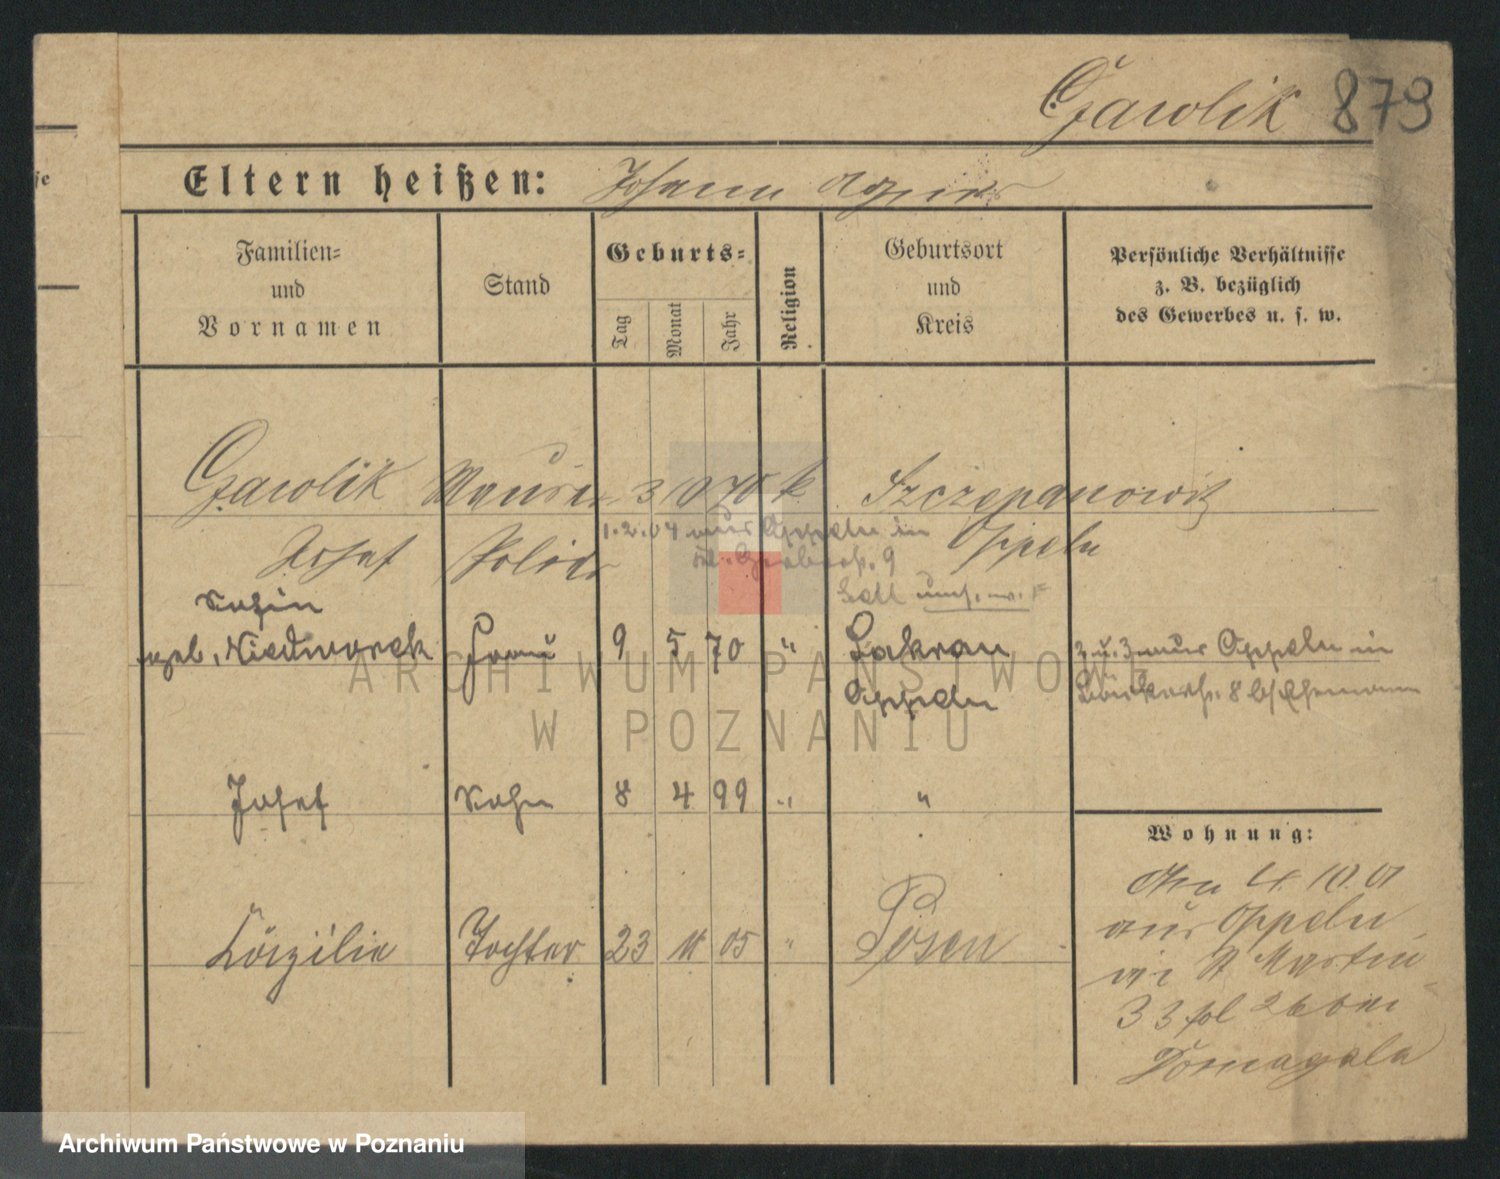 Gawlik 879
Eltern heißen: Johann Agnes
Familien=
und
Vornamen
Stand
Geburts=
Tag
Monat
Jahr
Religion
Geburtsort
und
Kreis
Persönliche Verhältnisse
z. B. bezüglich
des Gewerbes u. s. w.
Gawlik Maurer 3 10 70 k Szczepanowitz
1.2.04 aus Oppeln in
Josef Polier Oppeln
9
geb. Niedworok Frau 9 5 70 " Sakrau 2 u. 3 aus Oppeln in
Oppeln 8 b/
Josef Sohn 8 4 99 " "
Wohnung:
Cäzilie Tochter 23 11 05 " Posen
4 10 01
aus Oppeln
St Martin
33 bei
Domagala
ARCHIWUM PAŃSTWOWE
W POZNANIU
Archiwum Państwowe w Poznaniu